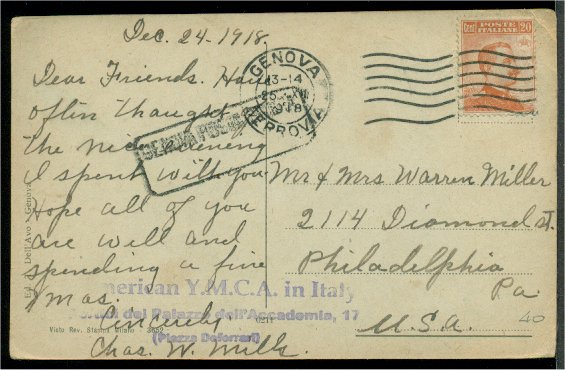 Dec. 24-1918.
Dear Friends. Have
often thought
the nice evening
I spent with you
Hope all of you
are well and
spending a fine
Xmas.
Sincerely
Chas. W. Mills.
GENOVA
13-14
25 XII
1918
FERROVIA
POSTE ITALIANE
Cent 20
Mr & Mrs Warren Miller
2114 Diamond st.
Philadelphia
Pa.
U.S.A.
40
American Y.M.C.A. in Italy
Palazzo dell'Accademia, 17
(Piazza Deferrari)
Dell'Avo - Genova
Visto Rev. Stampa Milano - 3692